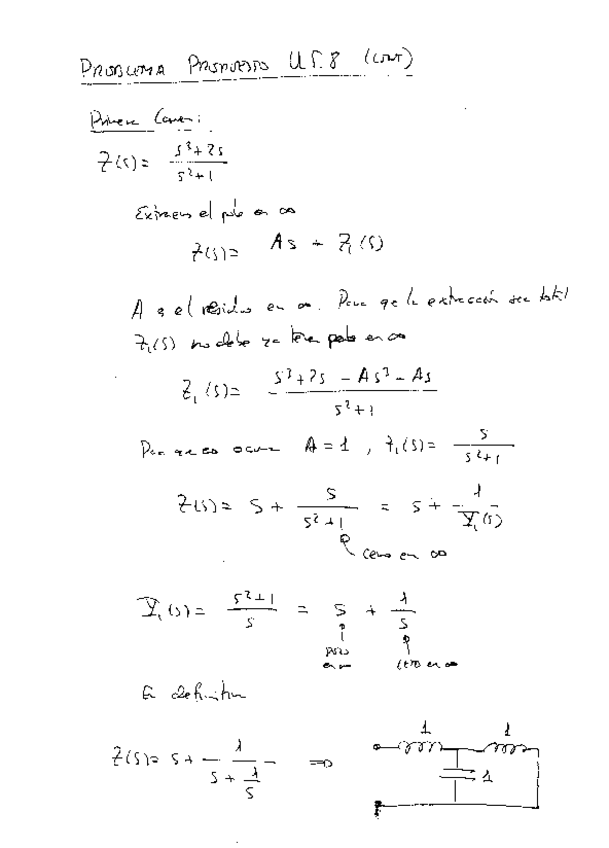 PROBLEMA PROPUESTO U.T.8 (CONT)
Primera Cauer:
Z(s) = (s³+2s)/(s²+1)
Extraemos el polo en ∞
Z(s) = As + Z₁(s)
A es el residuo en ∞. Para que la extracción sea total
Z₁(s) no debe ya tener polo en ∞
Z₁(s) = (s³+2s - As³ - As)/(s²+1)
Para que eso ocurra A = 1, Z₁(s) = s/(s²+1)
Z(s) = s + s/(s²+1) = s + 1/Y₁(s)
cero en ∞
Y₁(s) = (s²+1)/s = s + 1/s
polo en ∞ cero en ∞
En definitiva
Z(s) = s + 1/(s + 1/s) ⇒
1 1
1